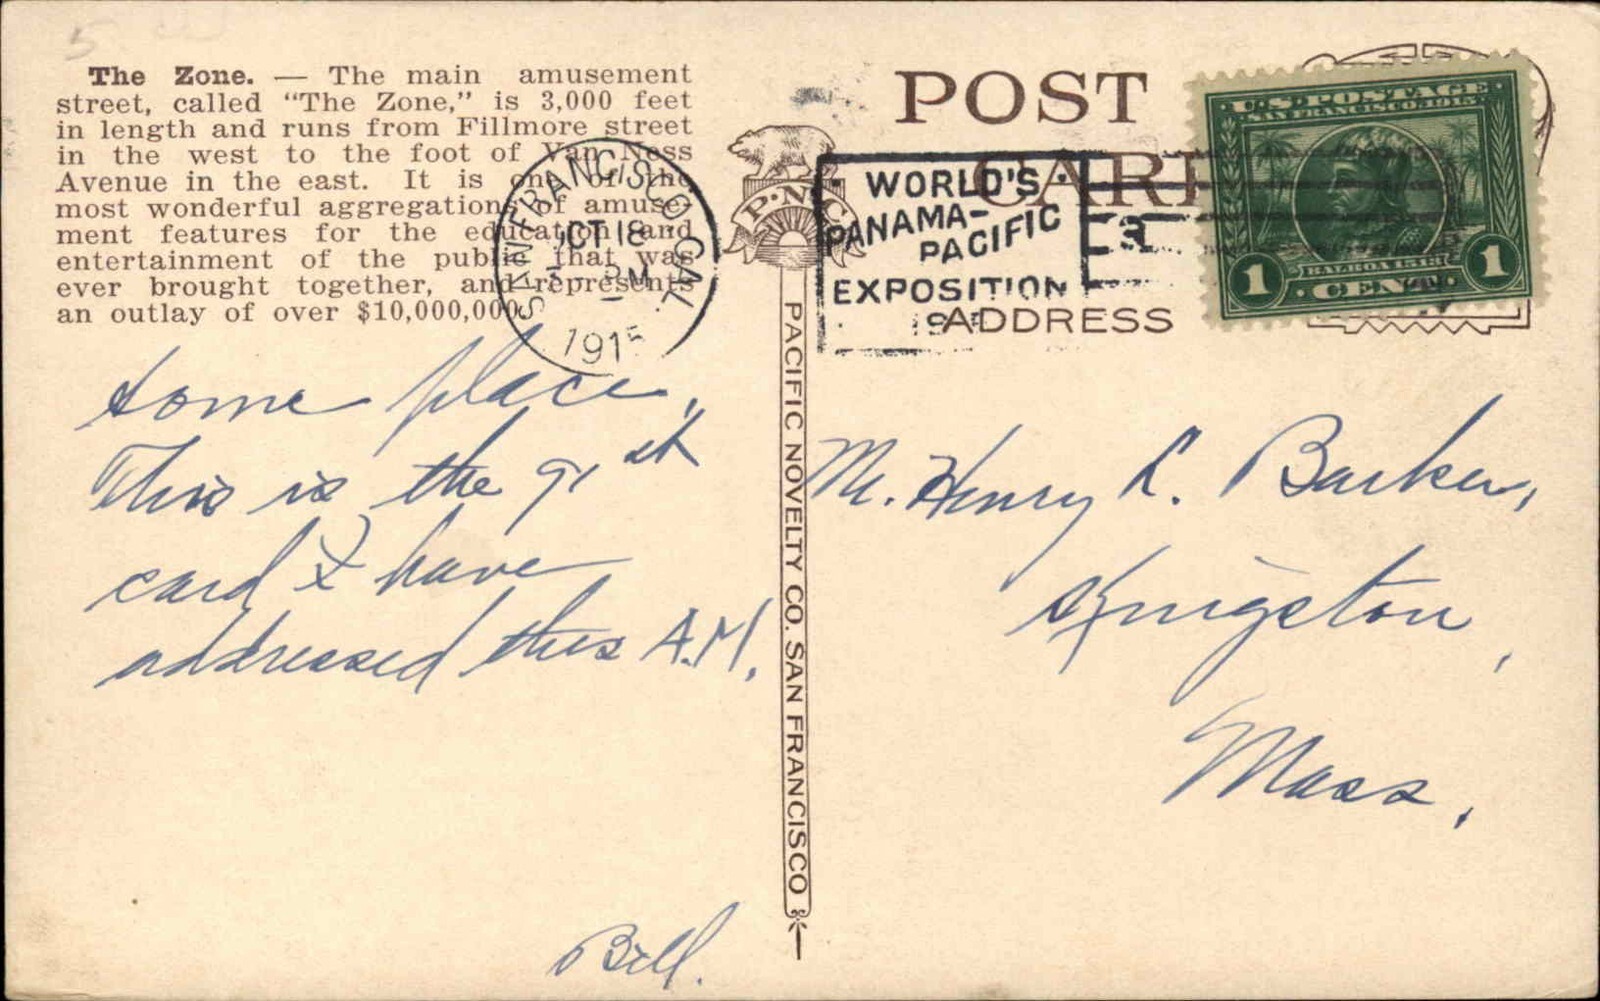 5
The Zone. — The main amusement
street, called “The Zone,” is 3,000 feet
in length and runs from Fillmore street
in the west to the foot of Van Ness
Avenue in the east. It is one of the
most wonderful aggregations of amuse-
ment features for the education and
entertainment of the public that was
ever brought together, and represents
an outlay of over $10,000,000.
SAN FRANCISCO, CAL.
OCT 18
PM
1915
some place,
This is the 91st
card I have
addressed this A.M.
Bill.
P.N.C.
PACIFIC NOVELTY CO. SAN FRANCISCO
POST
CARD
WORLD'S
PANAMA-
PACIFIC
EXPOSITION
1915
3
ADDRESS
U.S. POSTAGE
SAN FRANCISCO 1915
BALBOA 1513
1 CENT 1
Mr. Henry L. Barker,
Kingston,
Mass.